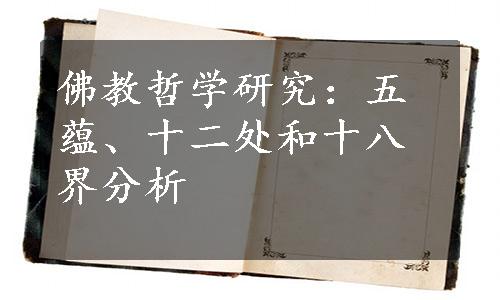 佛教哲学研究：五
蕴、十二处和十八
界分析